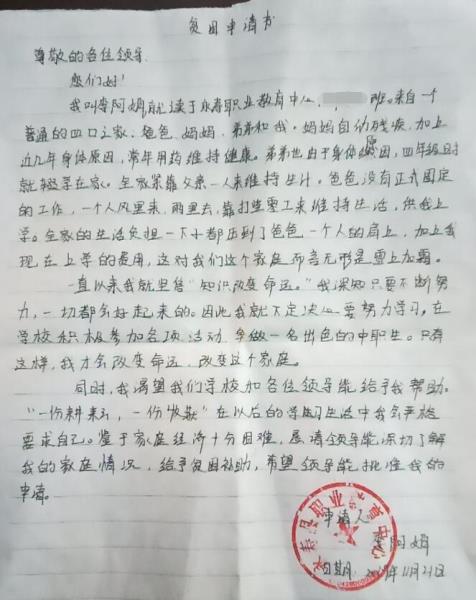 贫困申请书
尊敬的各位领导:
您们好!
我叫李阿娟就读于永寿职业教育中心, 班。来自一
普通的四口之家,爸爸、妈妈、弟弟和我。妈妈自幼残疾,加上
近几年身体原因,常年用药维持健康。弟弟也由于身体原因,四年级时
就辍学在家。全家紧靠父亲一人来维持生计。爸爸没有正式固定
的工作,一个人风里来,雨里去,靠打些零工来维持生活,供我上
学。全家的生活负担一下子都压到了爸爸一个人的肩上,加上我
现在上学的费用,这对我们这个家庭而言无形是雪上加霜。
一直以来我就坚信“知识改变命运。”我深知只要不断努
力,一切都会好起来的。因此我就下定决心要努力学习,在
学校积极参加各项活动争做一名出色的中职生。只有
这样,我才会改变命运,改变这个家庭。
同时,我渴望我们学校加各位领导能给予我帮助。
“一份耕耘,一份收获”在以后的学习生活中我会严格
要求自己。鉴于家庭经济十分困难,恳请领导能深切了解
我的家庭情况,给予贫困补助,希望领导能批准我的
申请。
申请人
李阿娟
日期: 2019年11月21日
永寿县职业教育中心